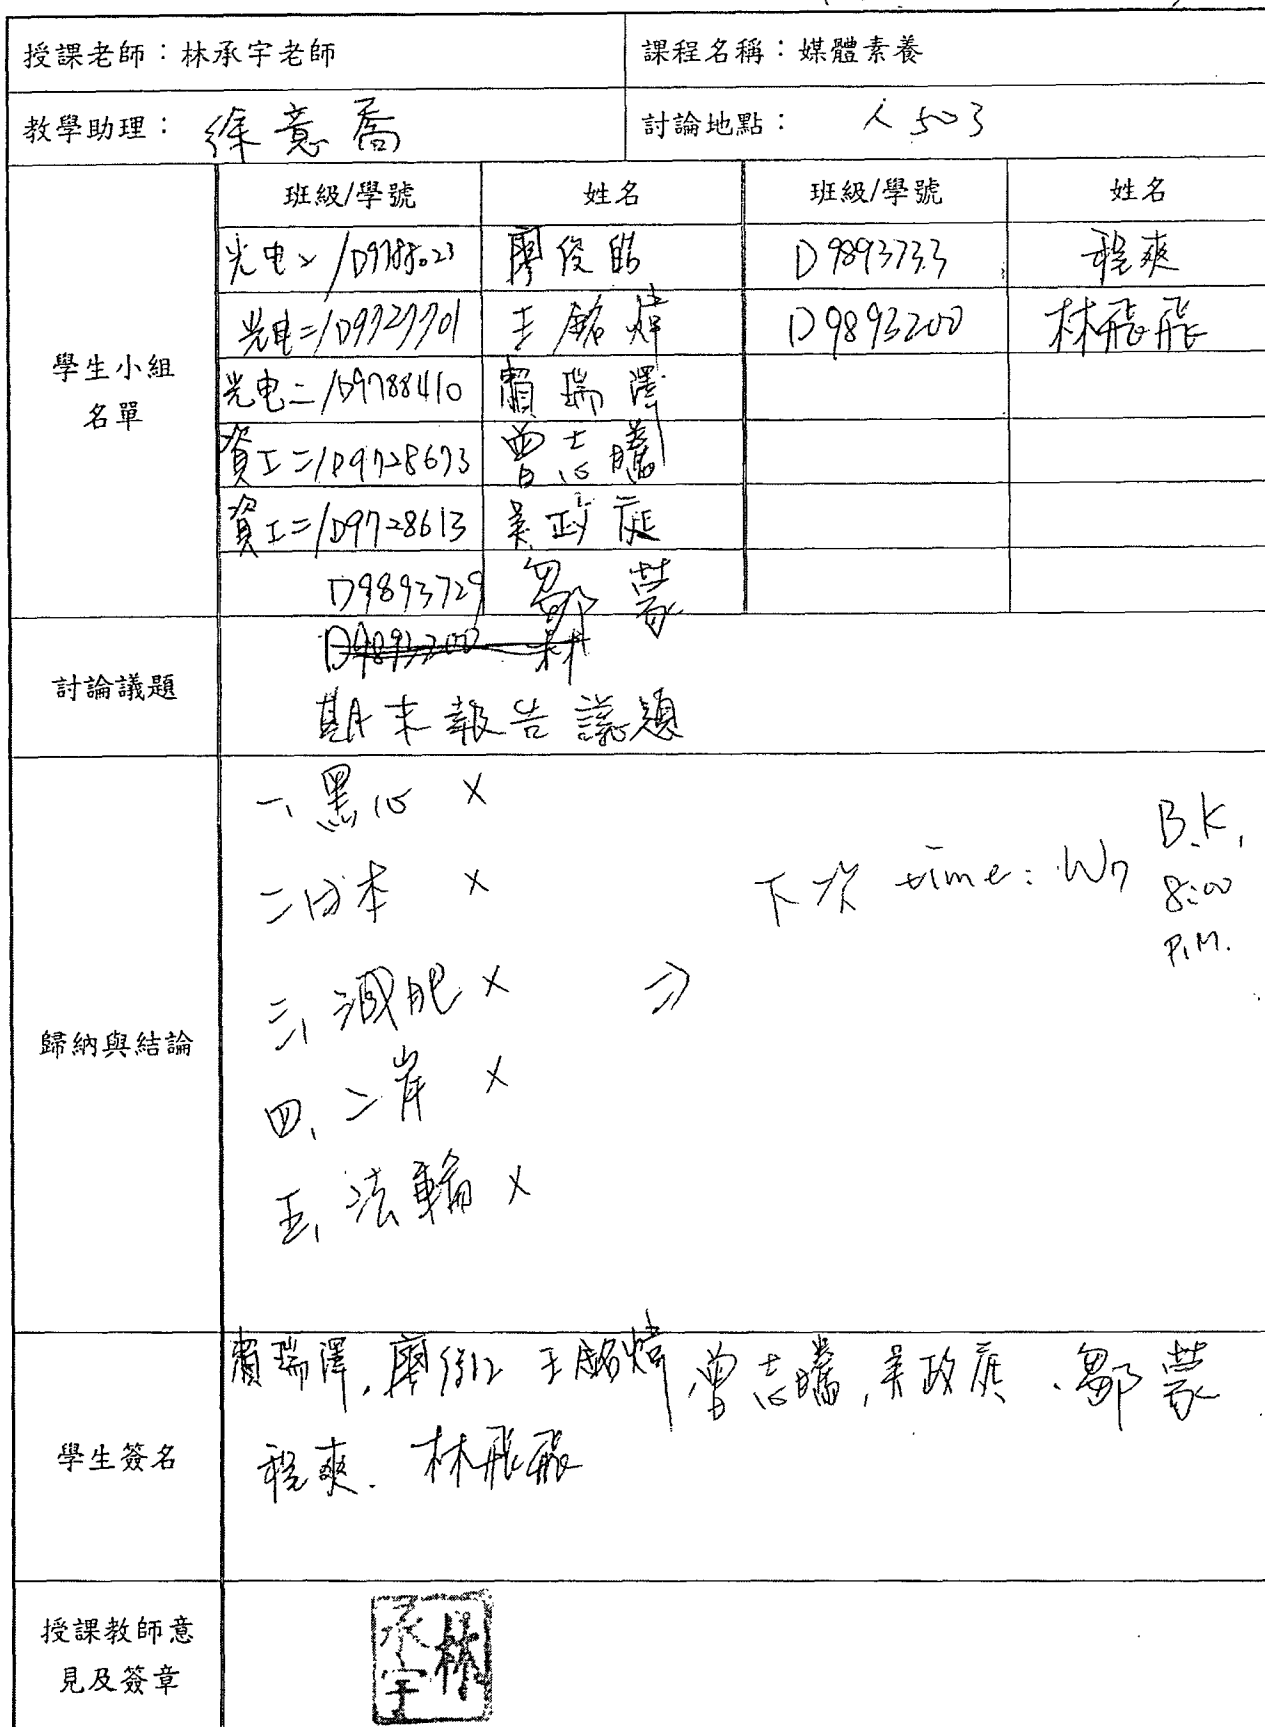 授課老師：林承宇老師 課程名稱：媒體素養
教學助理：徐意喬 討論地點：人503
班級/學號 姓名 班級/學號 姓名
光电二/D9785023 廖俊皓 D9893733 程爽
光電二/D9727701 王銘煒 D9893200 林飛飛
光电二/D9788410 賴瑞澤
資工二/D9728673 曾志騰
資工二/D9728613 吳政庭
D9893729 鄒蒙
學生小組
名單
D9893200 林
討論議題
期末報告議題
歸納與結論
一、黑心 X
二、日本 X
三、減肥 X
四、二岸 X
五、法輪 X
⇒
下次 time: W7 B.K.
8:00
P.M.
學生簽名
賴瑞澤, 廖 王銘煒, 曾志騰, 吳政庭、鄒蒙
程爽. 林飛飛
授課教師意
見及簽章
林承宇